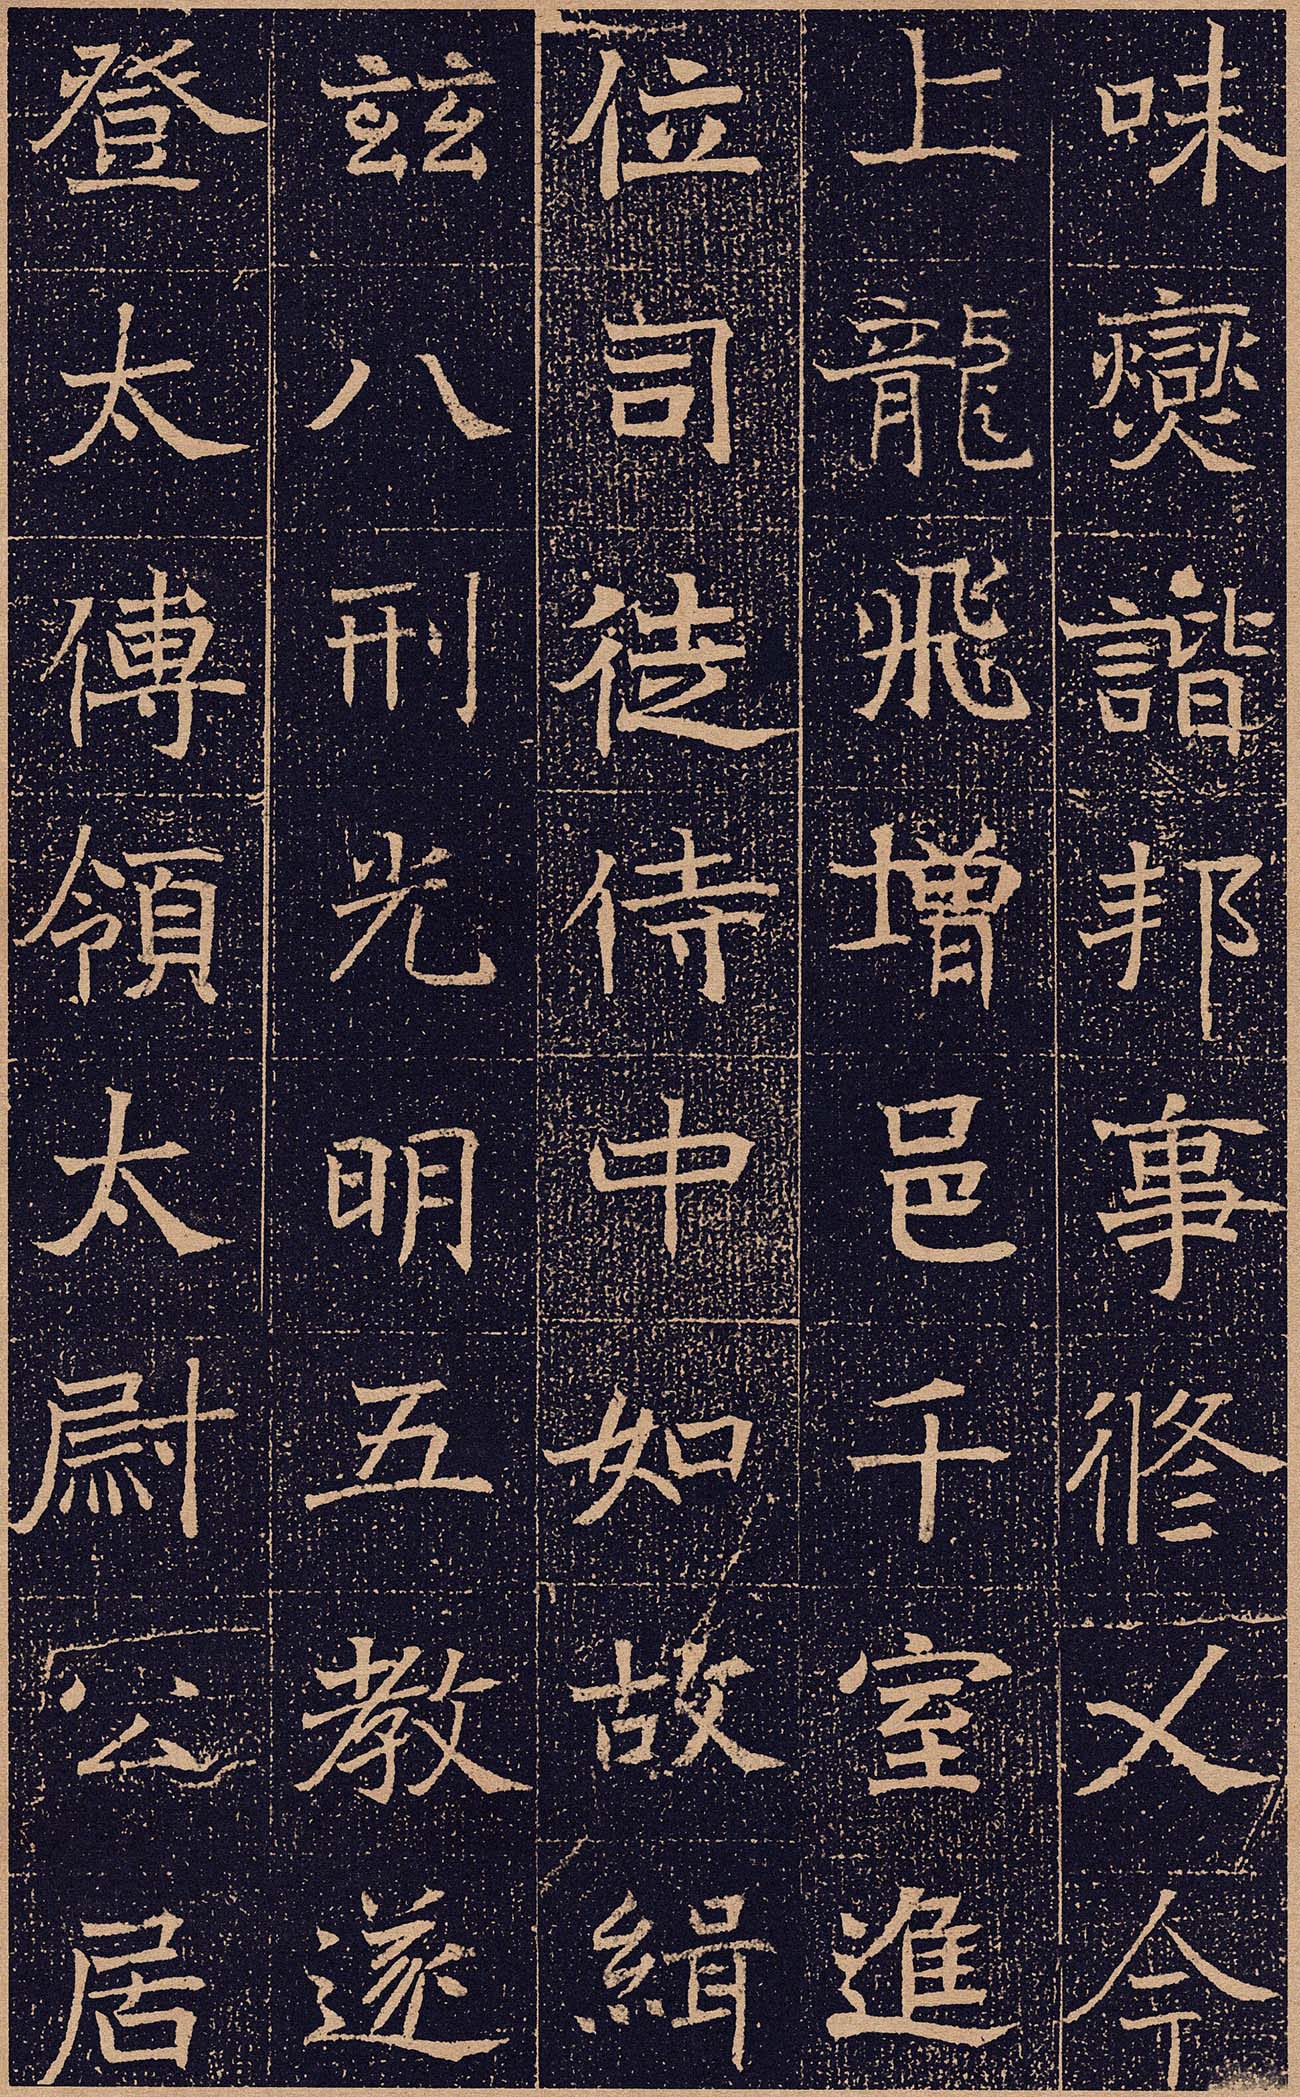 味燮諧邦事修乂今
上龍飛增邑千室進
位司徒侍中如故緝
兹八刑光明五教遂
登太傅領太尉公居